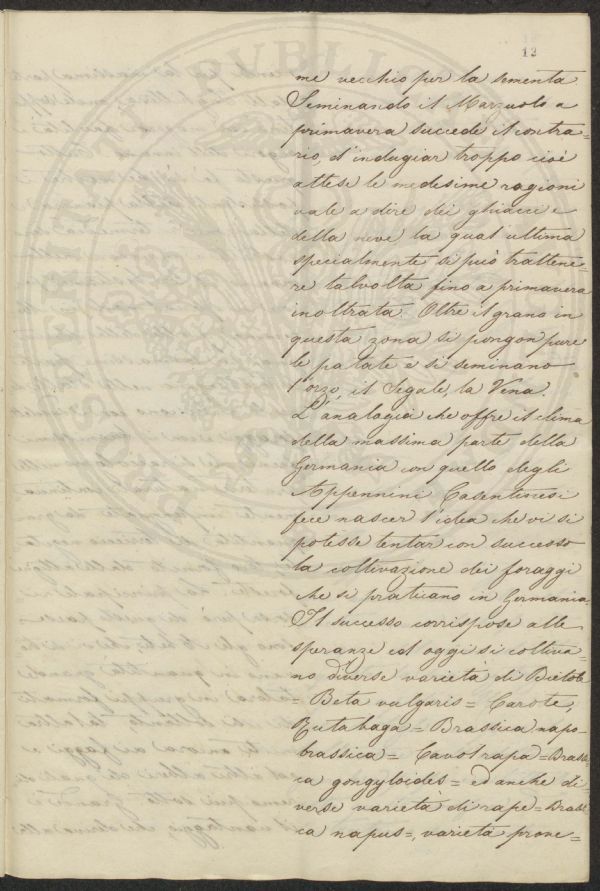 12
me vecchio per la sementa
Seminando il Marzuolo a
primavera succede il contra=
rio, d'indugiar troppo cioè
attese le medesime ragioni
vale a dire dei ghiacci e
della neve la qual ultima
specialmente si può trattene=
re talvolta fino a primavera
inoltrata. Oltre il grano in
questa zona si pongon pure
le patate e si seminano
l'orzo, il Segale, la Vena.
L'analogia che offre il clima
della massima parte della
Germania con quello degli
Appennini Casentinesi
fece nascer l'idea che vi si
potesse tentar con successo
la coltivazione dei foraggi
che si praticano in Germania.
Il successo corrispose alle
speranze ed oggi si coltiva=
no diverse varietà di Bietole
= Beta vulgaris = Carote,
Rutabaga = Brassica napo
brassica = Cavol rapa = Brassi
ca gongyloides = ed anche di=
verse varietà di rape = Brassi
ca napus =, varietà prove=
PVBLICA